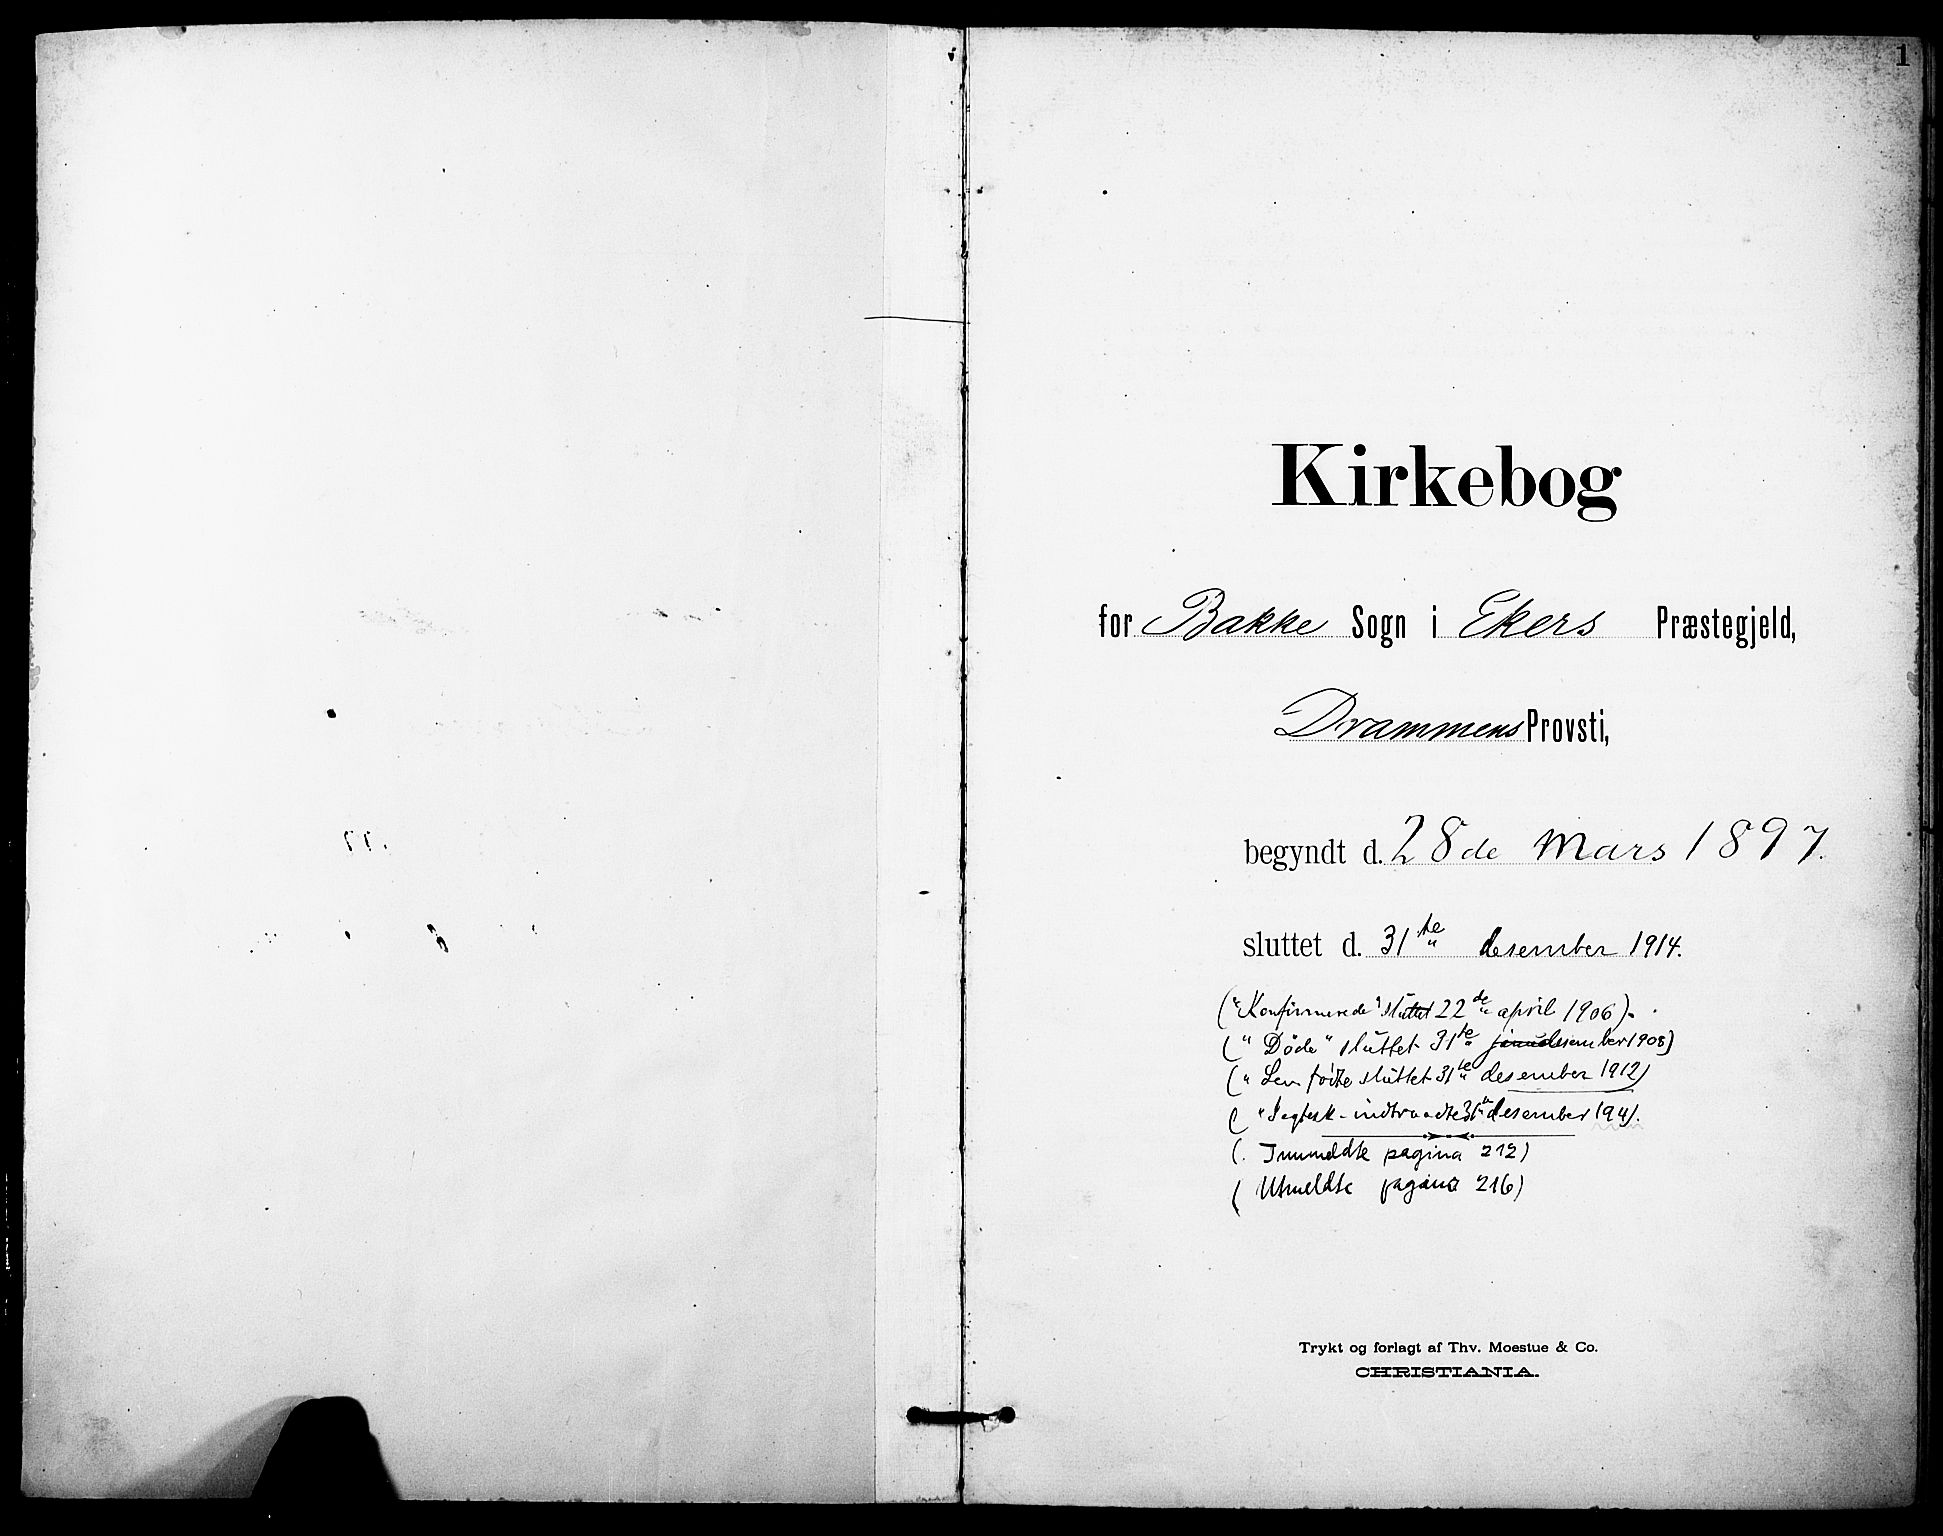 1
Kirkebog
for Bakke Sogn i Ekers Præstegjeld,
Drammens Provsti,
begyndt d. 28de Mars 1897.
sluttet d. 31te desember 1914.
("Konfirmerede" sluttet 22de april 1906).
(" Døde" sluttet 31te desember 1908)
(" Lev. fødte sluttet 31te desember 1912)
( indtraadte 31te desember
(. Innmeldte pagina 212)
( Utmeldte pagina 216)
Trykt og forlagt af Thv. Moestue & Co.
CHRISTIANIA.